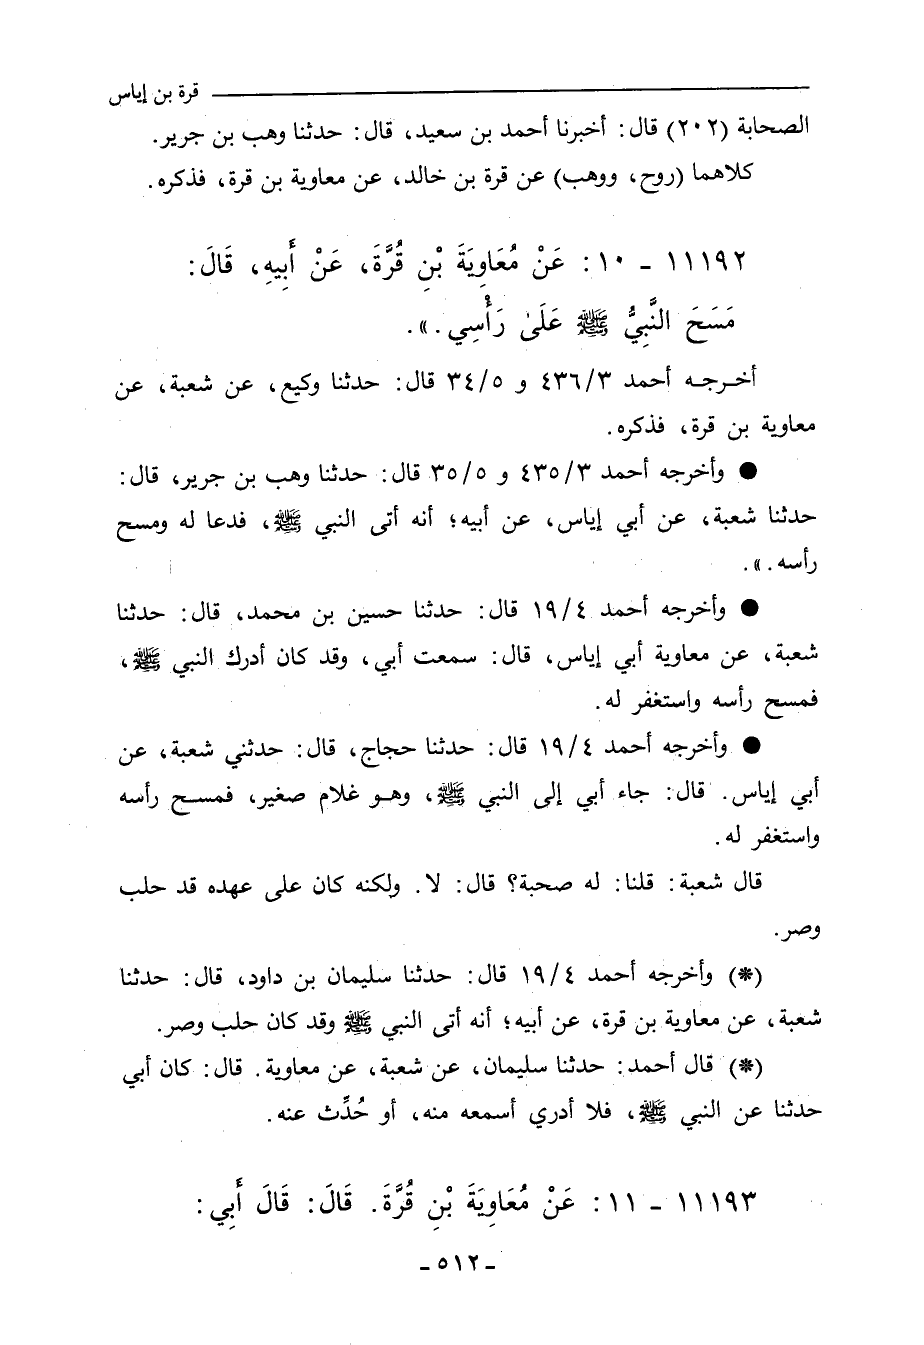 قرة بن إياس
الصحابة (٢٠٢) قال: أخبرنا أحمد بن سعيد، قال: حدثنا وهب بن جرير.
كلاهما (روح، ووهب) عن قرة بن خالد، عن معاوية بن قرة، فذكره.
١١١٩٢ - ١٠: عَنْ مُعَاوِيَةَ بْنِ قُرَّةَ، عَنْ أَبِيهِ، قَالَ:
مَسَحَ النَّبِيُّ ﷺ عَلَىٰ رَأْسِي.».
أخـرجـه أحمد ٤٣٦/٣ و ٣٤/٥ قال: حدثنا وكيع، عن شعبة، عن
معاوية بن قرة، فذكره.
● وأخرجه أحمد ٤٣٥/٣ و ٣٥/٥ قال: حدثنا وهب بن جرير، قال:
حدثنا شعبة، عن أبي إياس، عن أبيه؛ أنه أتى النبي ﷺ، فدعا له ومسح
رأسه.».
● وأخرجه أحمد ١٩/٤ قال: حدثنا حسين بن محمد، قال: حدثنا
شعبة، عن معاوية أبي إياس، قال: سمعت أبي، وقد كان أدرك النبي ﷺ،
فمسح رأسه واستغفر له.
● وأخرجه أحمد ١٩/٤ قال: حدثنا حجاج، قال: حدثني شعبة، عن
أبي إياس. قال: جاء أبي إلى النبي ﷺ، وهـو غلام صغير، فمسـح رأسه
واستغفر له.
قال شعبة: قلنا: له صحبة؟ قال: لا. ولكنه كان على عهده قد حلب
وصر.
(*) وأخرجه أحمد ١٩/٤ قال: حدثنا سليمان بن داود، قال: حدثنا
شعبة، عن معاوية بن قرة، عن أبيه؛ أنه أتى النبي ﷺ وقد كان حلب وصر.
(*) قال أحمد: حدثنا سليمان، عن شعبة، عن معاوية. قال: كان أبي
حدثنا عن النبي ﷺ، فلا أدري أسمعه منه، أو حُدِّث عنه.
١١١٩٣ - ١١: عَنْ مُعَاوِيَةَ بْنِ قُرَّةَ. قَالَ: قَالَ أَبِي:
- ٥١٢ -